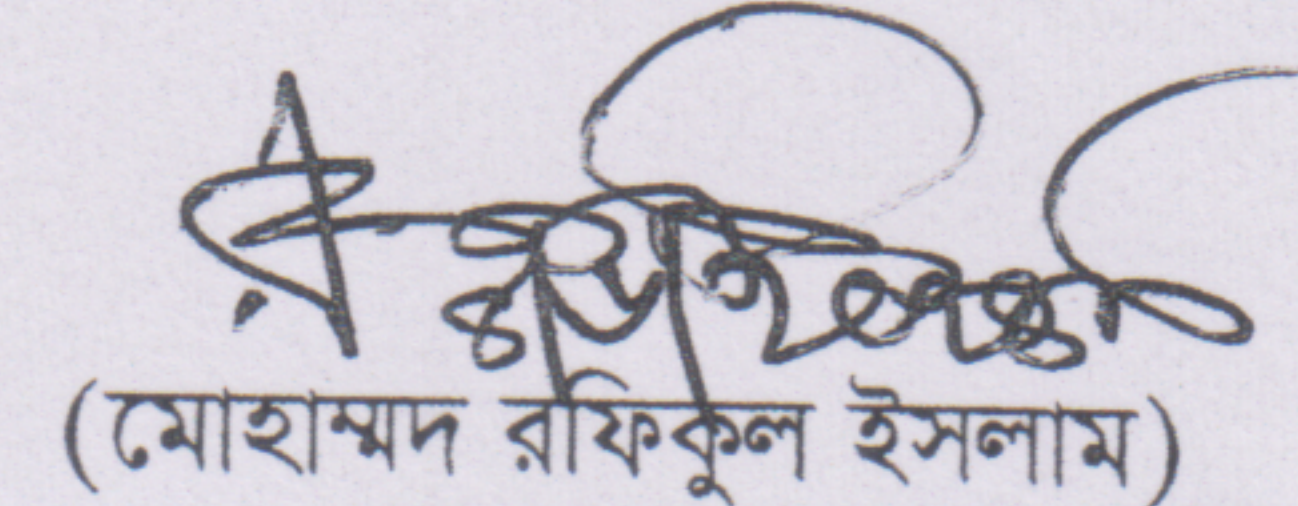 (মোহাম্মদ রফিকুল ইসলাম)